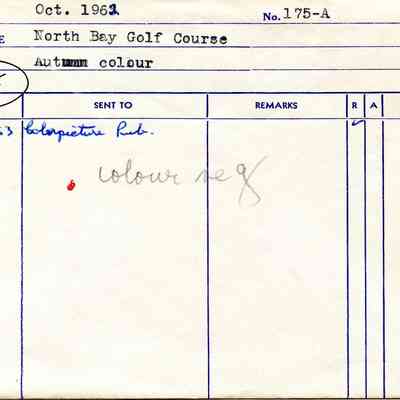 Oct. 1962 No. 175-A
E North Bay Golf Course
Autumn colour
SENT TO REMARKS R A
53 Colorpicture Pub. ✓
colour neg